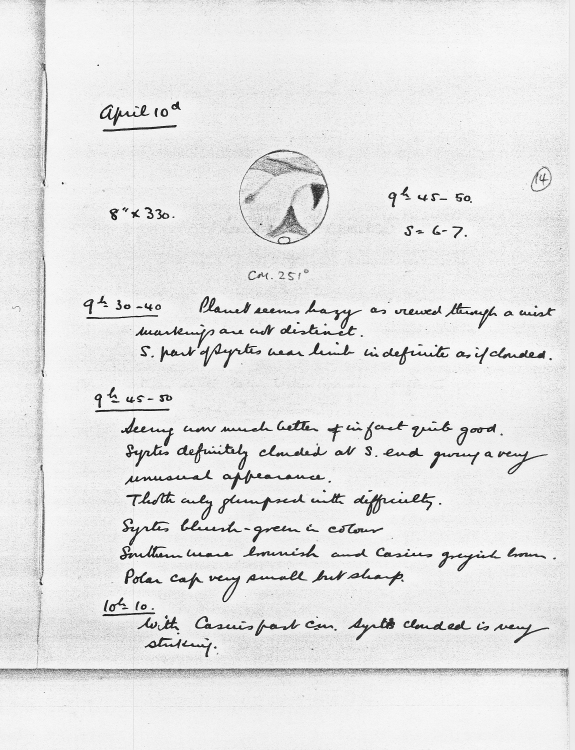 April 10d
14
8" x 330.
9h 45-50.
S = 6-7.
CM. 251°
9h 30-40 Planet seems hazy as viewed through a mist
markings are not distinct.
S. part of Syrtis near limb indefinite as if clouded.
9h 45-50
Seeing now much better & in fact quite good.
Syrtis definitely clouded at S. end giving a very
unusual appearance.
Thoth only glimpsed with difficulty.
Syrtis bluish-green in colour
Southern mare brownish and Casius greyish brown.
Polar cap very small but sharp.
10h 10.
With Casius past C.M. Syrtis clouded is very
striking.